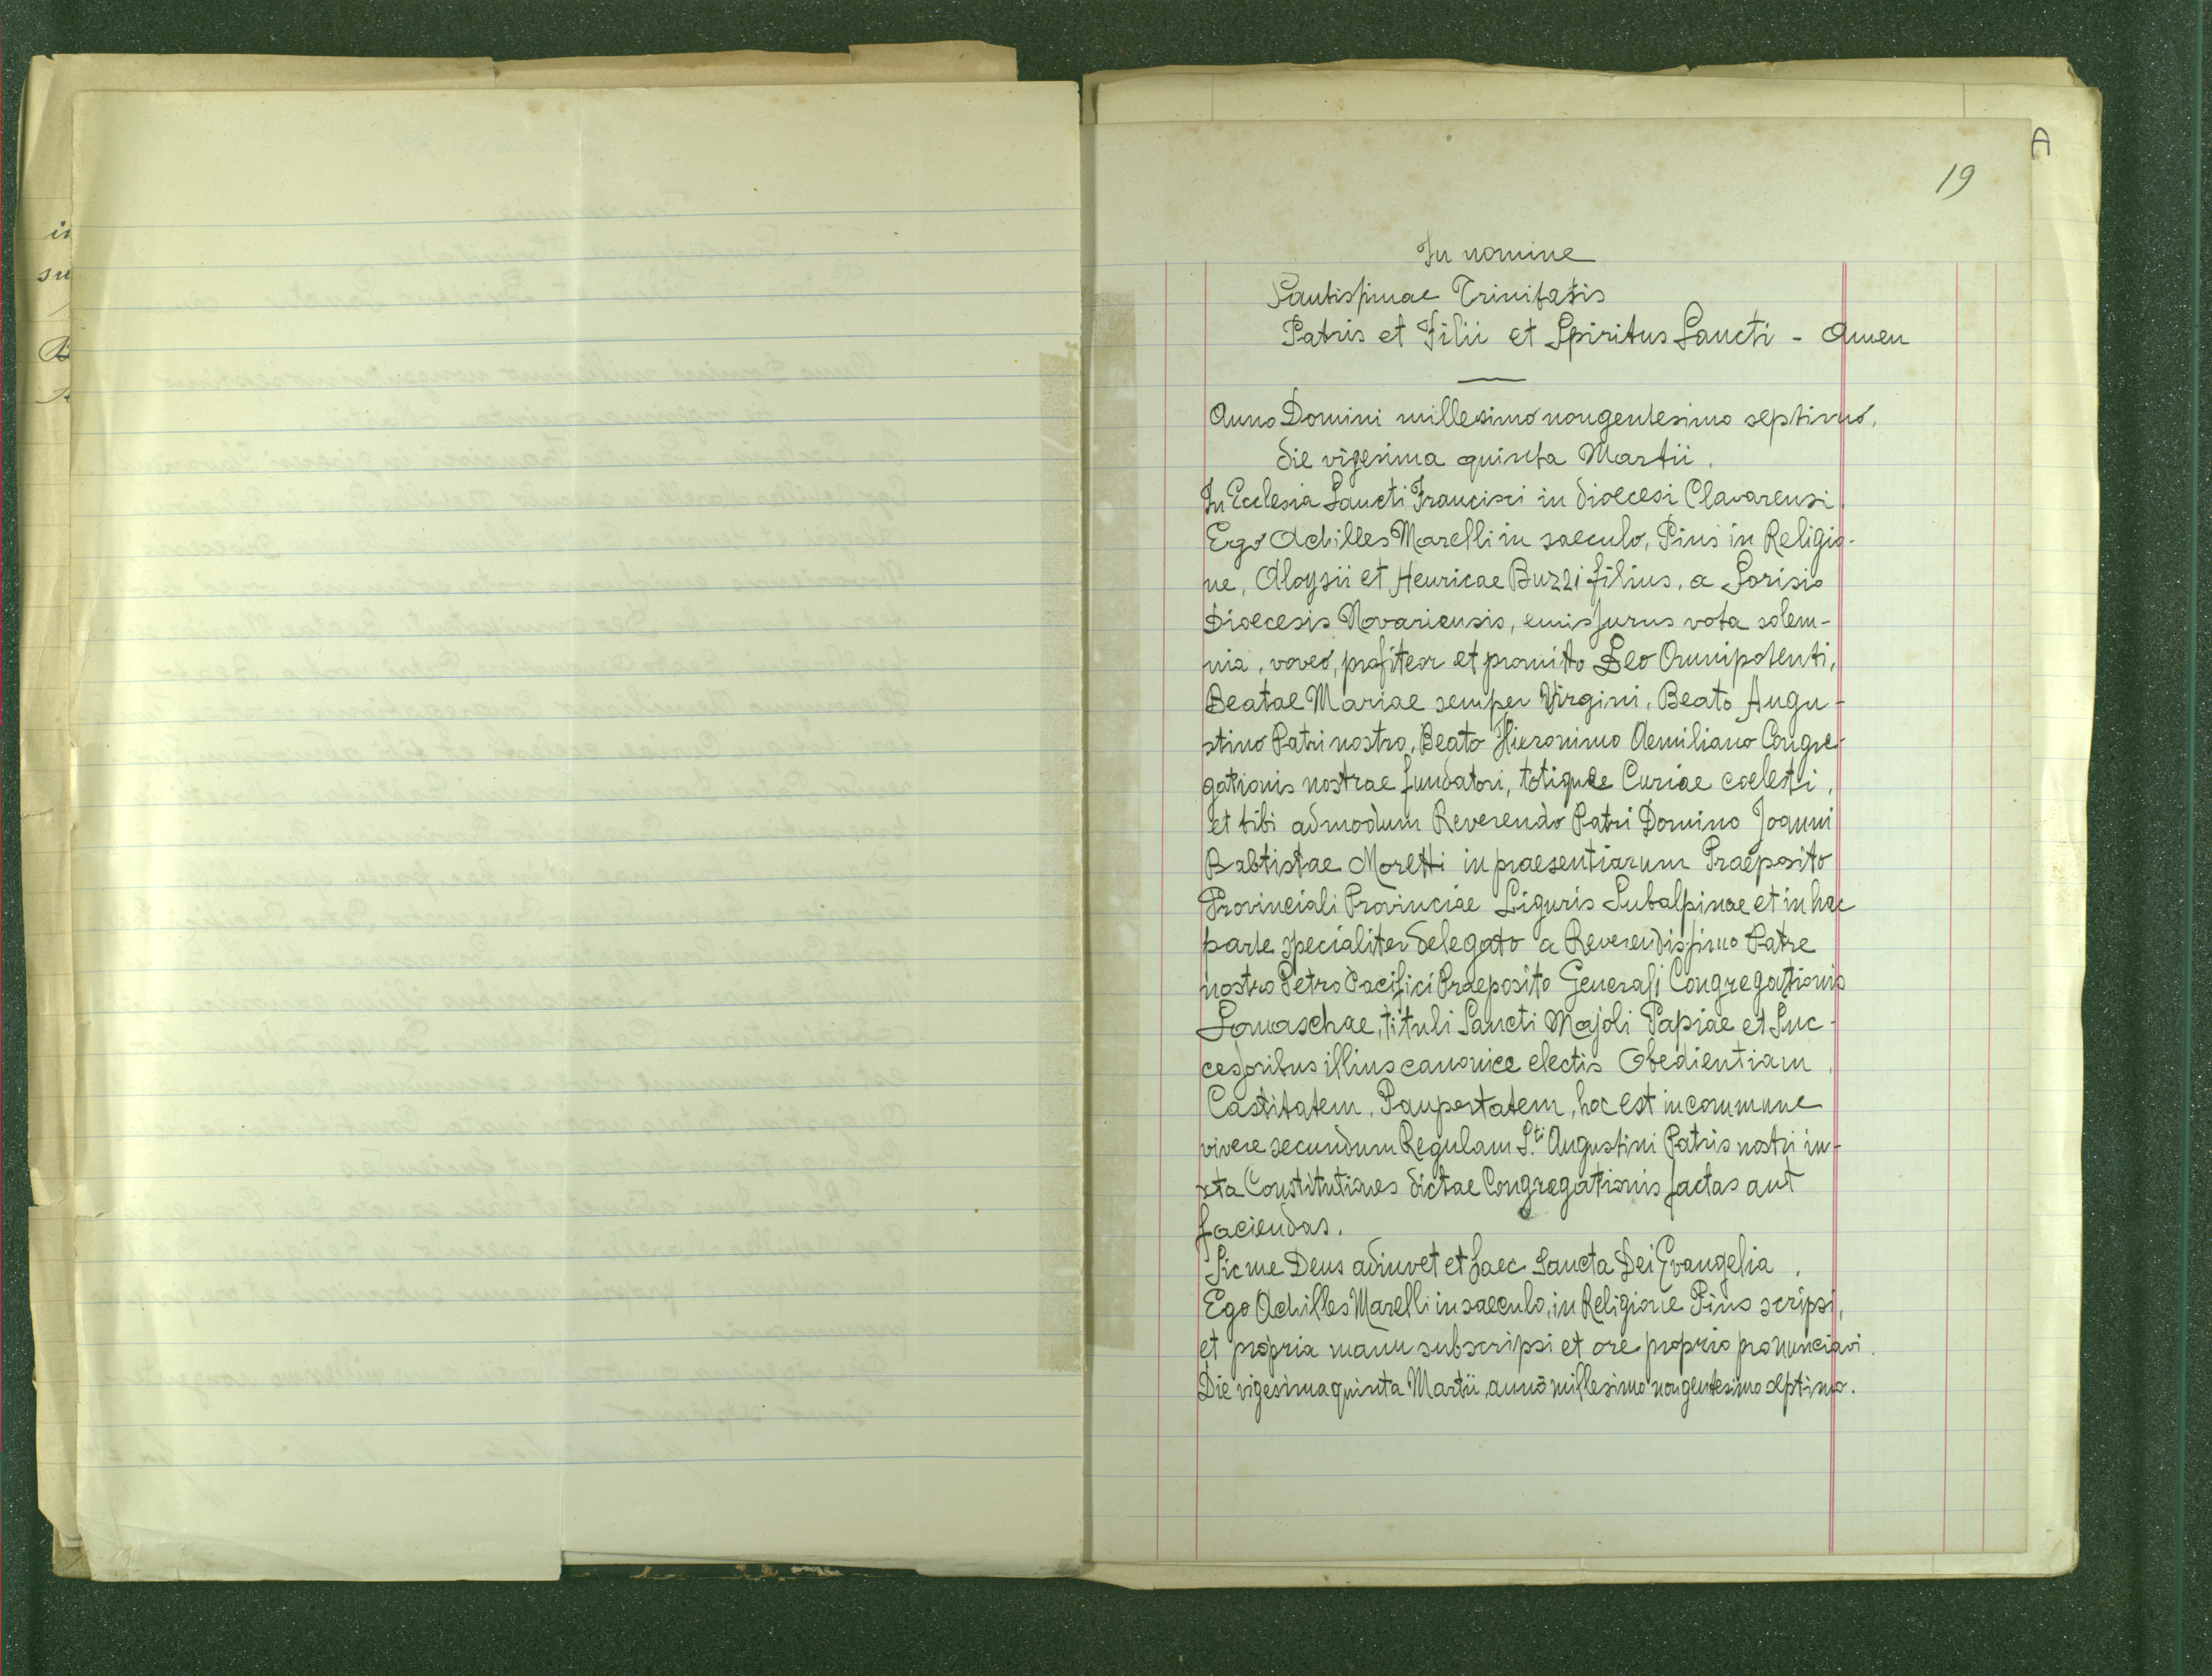 A
19
In nomine
Santissimae Trinitatis
Patris et Filii et Spiritus Sancti - Amen
Anno Domini millesimo nongentesimo septimo,
die vigesima quinta Martii.
In Ecclesia Sancti Francisci in dioecesi Clavarensi
Ergo Achilles Marelli in saeculo, Pius in Religio-
ne, Aloysii et Henricae Buzzi filius, a Sorisio
Dioecesis Novariensis, emissurus vota solem-
nia, voveo, profiteor et promitto Deo Omnipotenti,
Beatae Mariae semper Virgini, Beato Augu-
stino Patri nostro, Beato Hieronimo Aemiliano Congre-
gationis nostrae fundatori, totique Curiae coelesti,
et tibi admodum Reverendo Patri Domino Joanni
Babtistae Moretti in praesentiarum Praeposito
Provinciali Provinciae Liguris Subalpinae et in hac
parte specialiter delegato a Reverendissimo Patre
nostro Petro Pacifici Praeposito Generali Congregationis
Somaschae, tituli Sancti Majoli Papiae et Suc-
cessoribus illius canonice electis Obedientiam,
Castitatem, Paupertatem, hoc est in commune
vivere secundum Regulam S.ti Augustini Patris nostri iu-
xta Constitutiones dictae Congregationis factas aut
faciendas.
Sic me Deus adiuvet et haec Sancta Dei Evangelia.
Ego Achilles Marelli in saeculo, in Religione Pius scripsi,
et propria manu subscripsi et ore proprio pronunciavi.
Die vigesima quinta Martii, anno millesimo nongentesimo septimo.